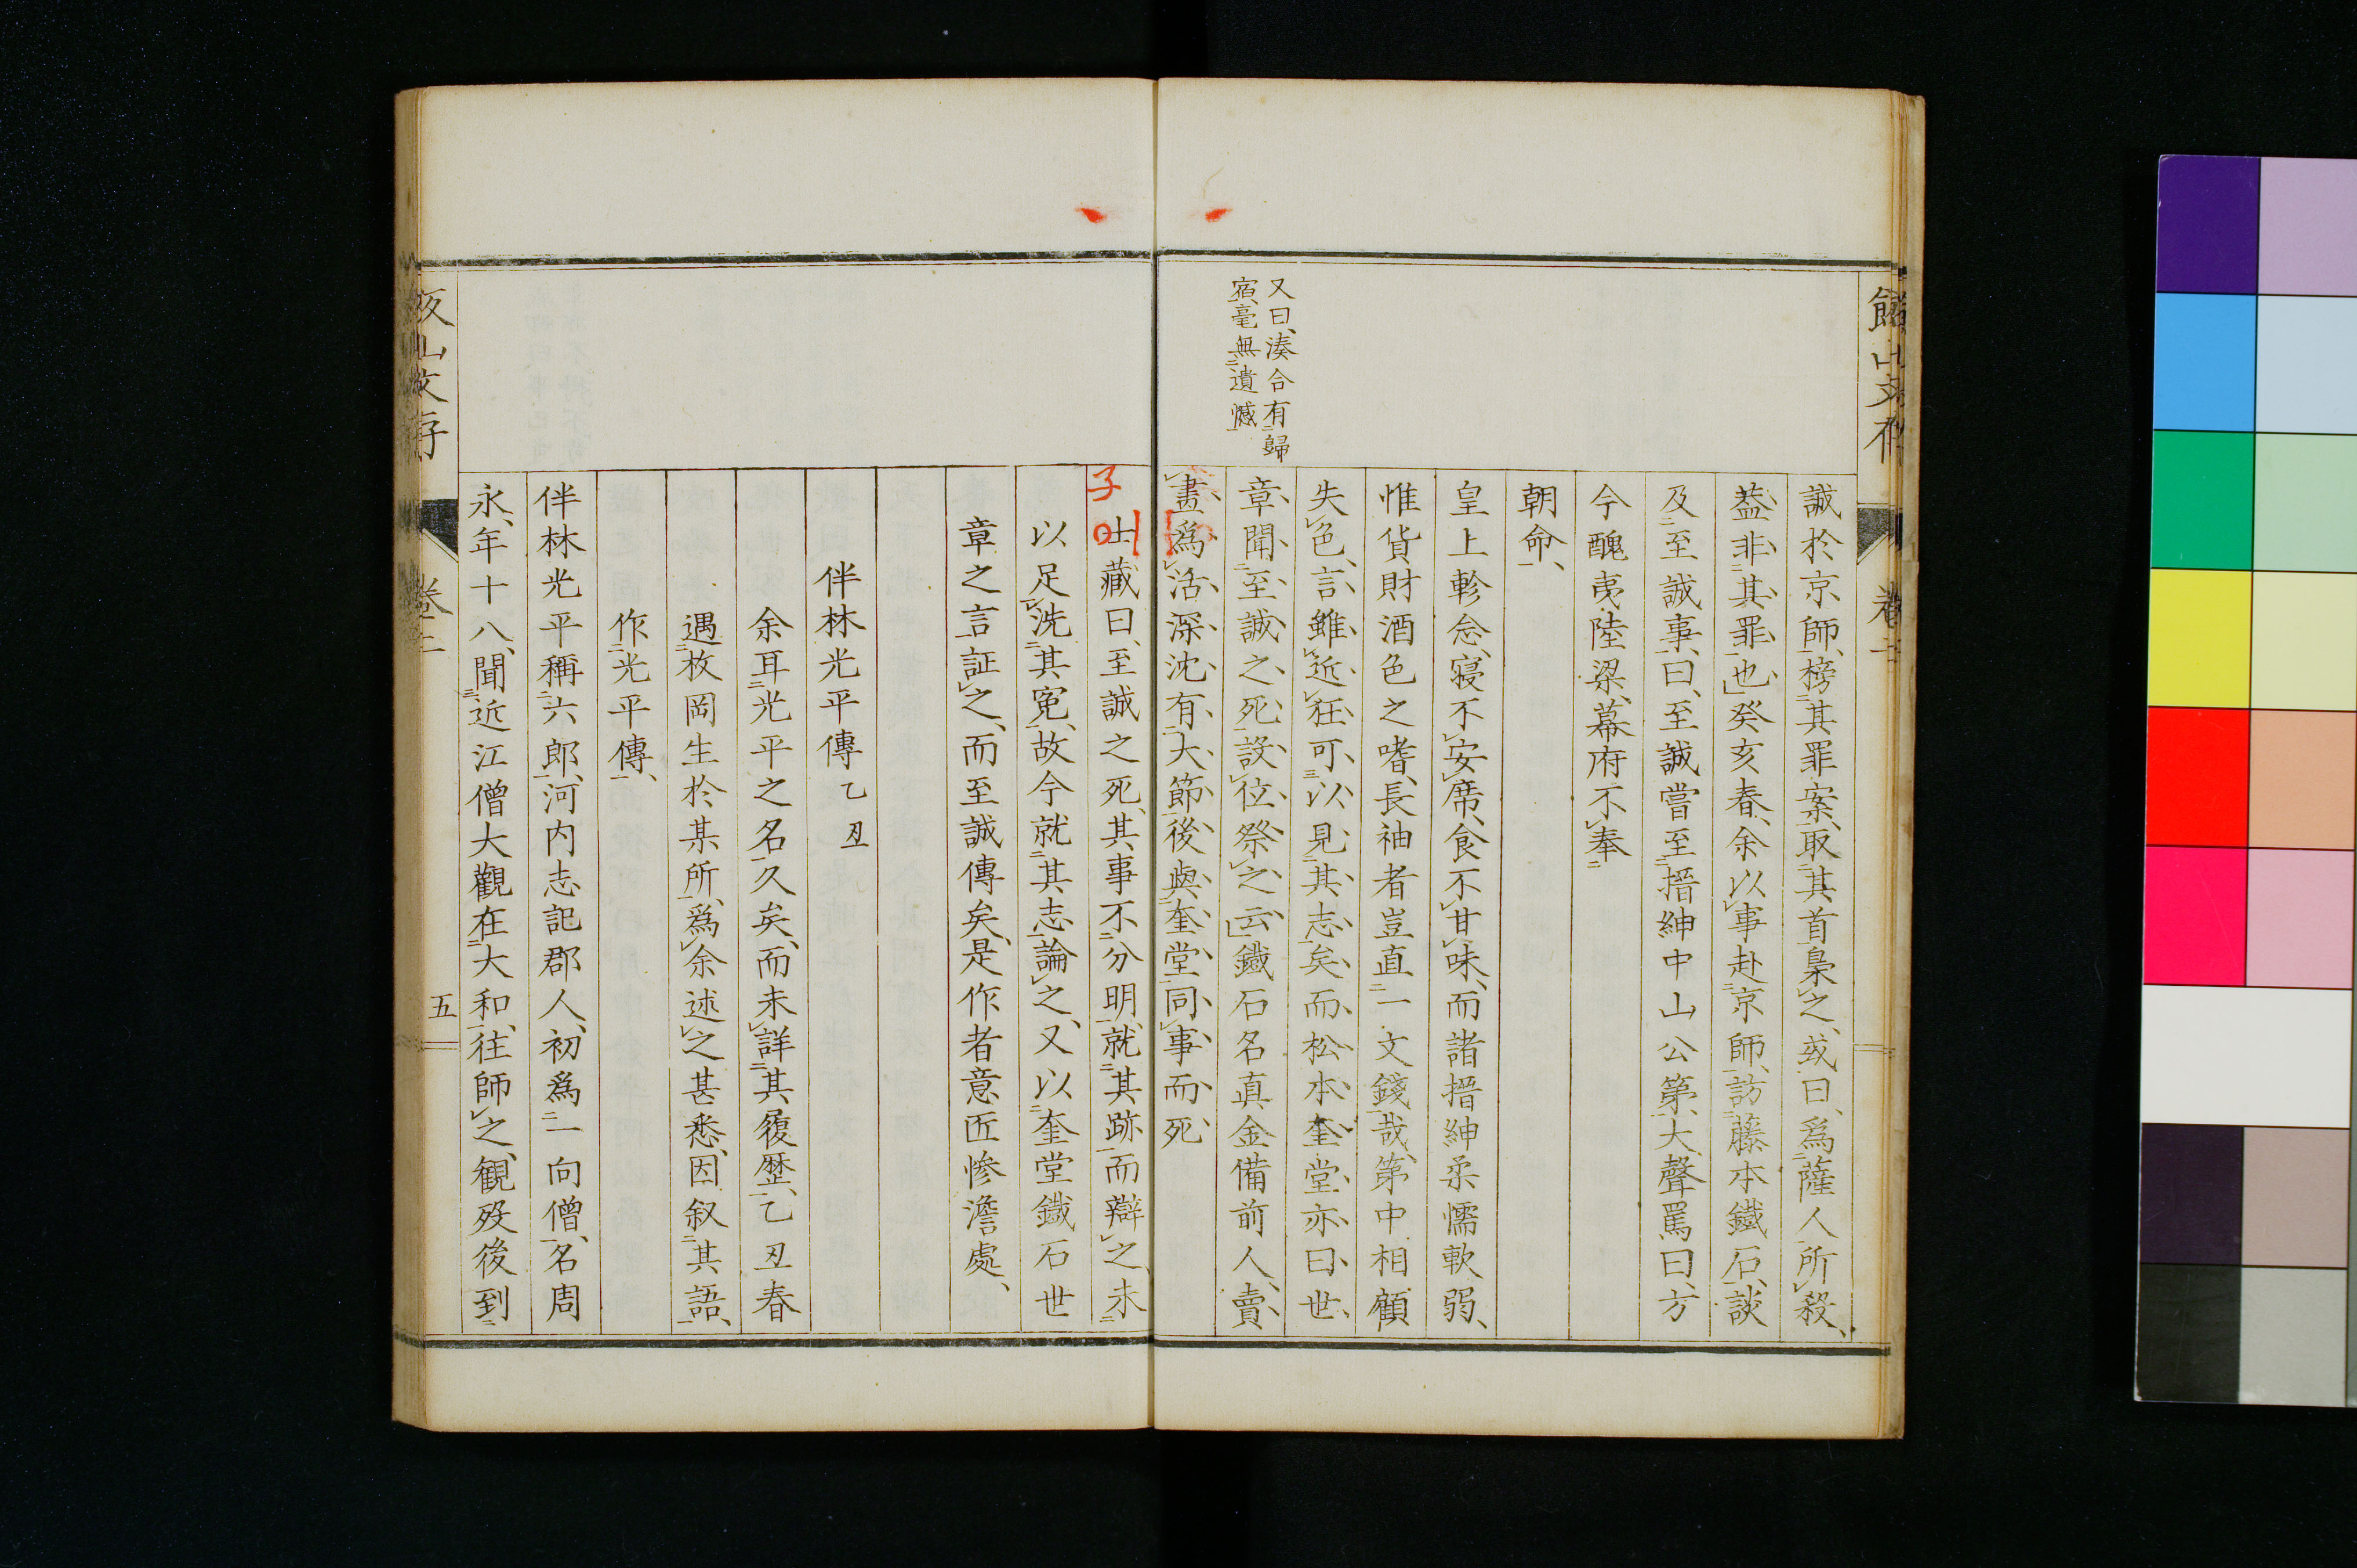 誠於京師、榜其罪案、取其首梟之、或曰、爲薩人所殺、
蓋非其罪也」癸亥春、余以事赴京師、訪藤本鐵石、談
及至誠事、曰、至誠嘗至搢紳中山公第、大聲罵曰、方
今醜夷陸梁、幕府不奉
朝命、
皇上軫念、寝不安席、食不甘味、而諸搢紳柔懦軟弱、
惟貨財酒色之嗜、長袖者豈直一文錢哉、第中相顧
失色、言雖近狂、可以見其志矣、而松本奎堂亦曰、世
章聞至誠之死、設位祭之云」鐵石名眞金備前人、賣
畫爲活、深沈有大節、後與奎堂同事而死
又曰、湊合有歸
宿、毫無遺憾
士藏曰、至誠之死、其事不分明、就其跡而辯之、未
子
以足洗其冤、故今就其志論之、又以奎堂鐵石世
章之言証之、而至誠傳矣、是作者意匠慘澹處、
伴林光平傳 乙丑
余耳光平之名久矣、而未詳其履歷、乙丑春
遇枚岡生於某所、爲余述之甚悉、因叙其語、
作光平傳、
伴林光平稱六郎、河内志記郡人、初爲一向僧、名周
永、年十八、聞近江僧大觀在大和、往師之、觀歿後到
卷二
五